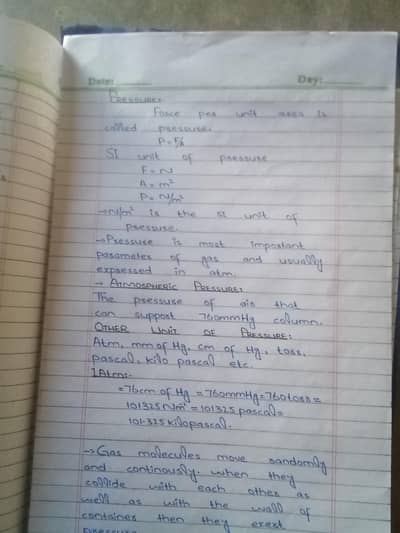 Date:
Day:
PRESSURE:
Force per unit area is
called pressure.
P = F/A
SI unit of pressure
F = N
A = m²
P = N/m²
→ N/m² is the SI unit of
pressure.
→ Pressure is most important
parameter of gas and usually
expressed in atm.
→ ATMOSPHERIC PRESSURE:
The pressure of air that
can support 760mmHg column.
OTHER UNIT OF PRESSURE:
Atm, mm of Hg, cm of Hg, torr,
pascal, kilo pascal etc.
1Atm:-
= 76cm of Hg = 760mmHg = 760torr =
101325 N/m² = 101325 pascal =
101.325 kilopascal.
→ Gas molecules move randomly
and continously. when they
collide with each other as
well as with the wall of
container then they exert
pressure